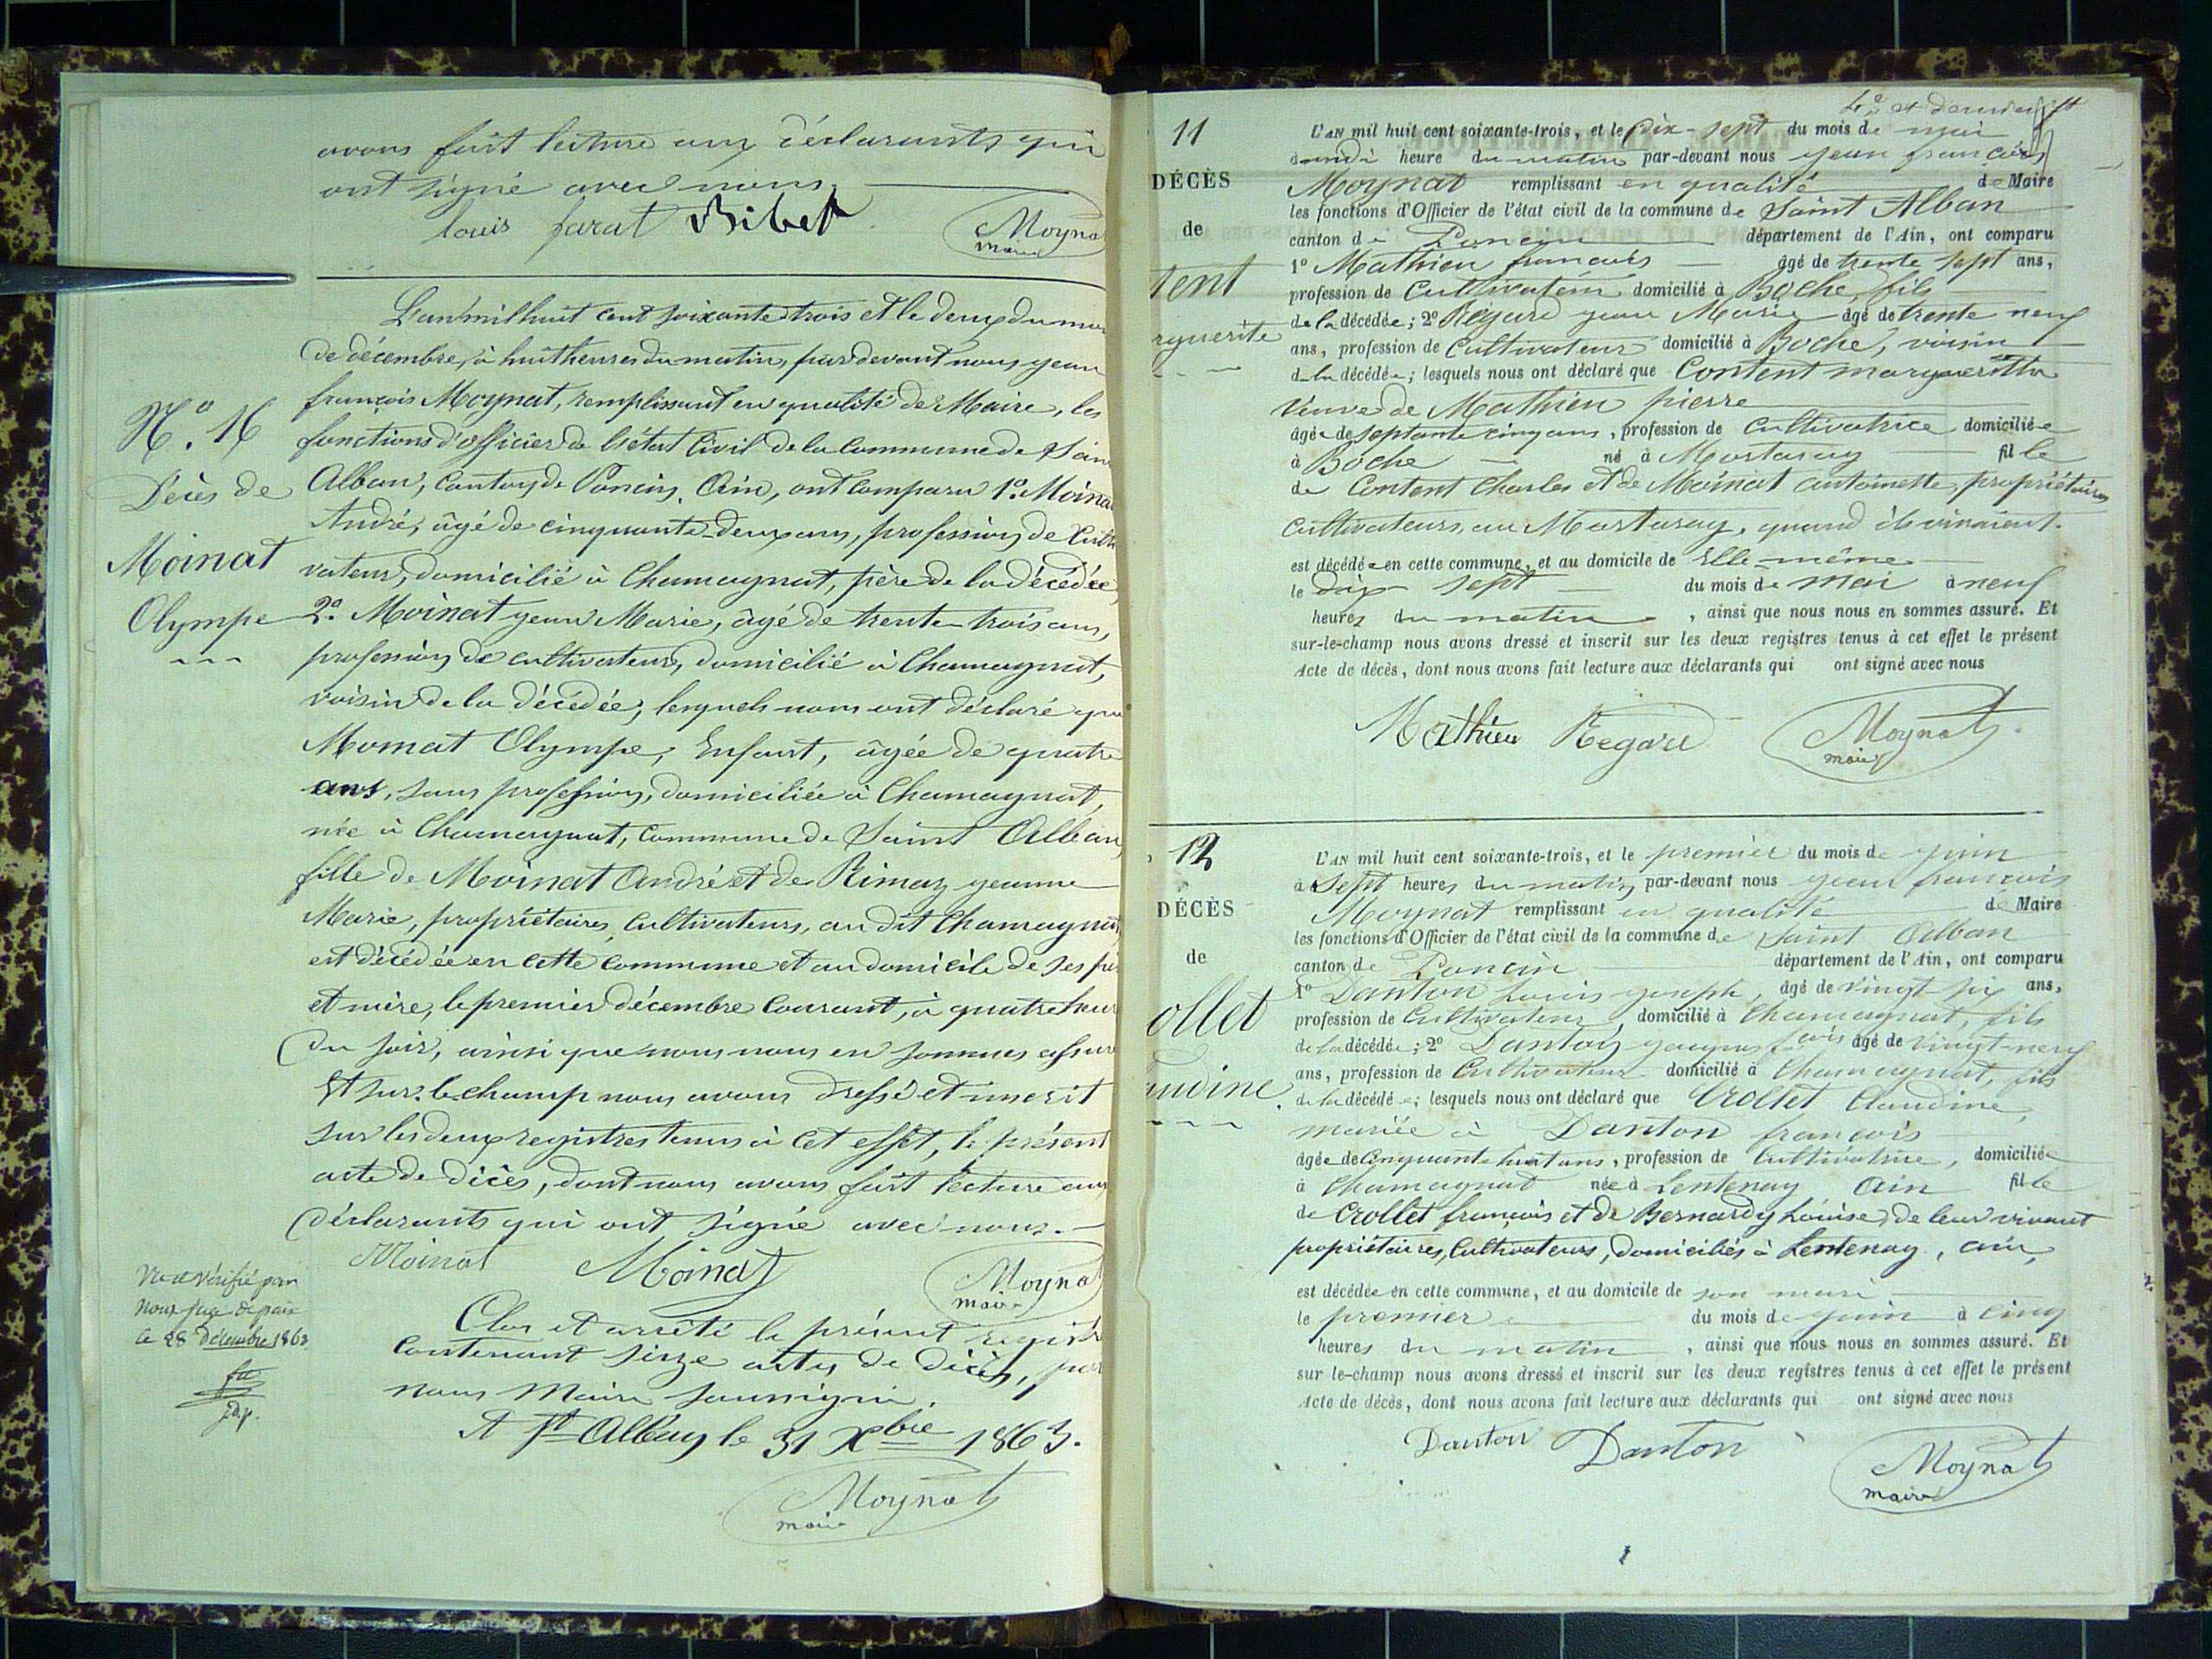 avons fait lecture aux déclarants qui
ont signé avec nous.
louis farat Bibet
Moyna
maire
L'an mil huit cent soixante trois et le deux du mois
de décembre, à huit heures du matin, par devant nous jean
françois Moynat, remplissant en qualité de Maire, les
fonctions d'officier de l'état Civil de la Commune de Sain
Alban, Canton de Poncin, Ain, ont Comparu 1º. Moinat
André, âgé de cinquante-deux ans, profession de Culti
vateur, domicilié à Chamagnat, père de la décédée,
2º. Moinat jean Marie, âgé de trente-trois ans,
profession de cultivateur, domicilié à Chamagnat,
voisin de la décédée, lesquels nous ont déclaré que
Moinat Olympe, Enfant, âgée de quatre
ans, sans profession, domiciliée à Chamagnat,
née à Chamagnat, Commune de Saint Alban,
fille de Moinat André et de Rimaz jeanne
Marie, propriétaires, Cultivateurs, au dit Chamagnat,
est décédée en cette commune et au domicile de ses pè
et mère, le premier décembre courant, à quatre heur
du soir, ainsi que nous nous en sommes assur
Et sur-le-champ nous avons dressé et inscrit
sur les deux registres tenus à cet effet, le présent
acte de décès, dont nous avons fait lecture aux
déclarants qui ont signé avec nous.
Nº. 16
Décès de
Moinat
Olympe
Moinat Moinat
Moyna
maire
Vu et Vérifié par
Nous juge de paix
Le 28 décembre 1863
j.d.p.
Clos et arrêté le présent registr
Contenant seize actes de décès, par
nous Maire soussigné.
A St Alban le 31 Xbre 1863.
Moynat
maire
4e et dernier ft
11
DÉCÈS
de
tent
rguerite
L'AN mil huit cent soixante-trois, et le dix-sept du mois de mai
à midi heure du matin par-devant nous jean françois
Moynat remplissant en qualité de Maire
les fonctions d'Officier de l'état civil de la commune de Saint Alban
canton de Poncin département de l'Ain, ont comparu
1º Mathieu françois âgé de trente sept ans,
profession de Cultivateur domicilié à Boche, fils
de la décédée; 2º Régard jean Marie âgé de trente neuf
ans, profession de Cultivateur domicilié à Boche, voisin
de la décédée; lesquels nous ont déclaré que Content margueritte
Veuve de Mathieu pierre
âgée de septante cinq ans, profession de Cultivatrice domiciliée
à Boche né à Mortaray fille
de Content Charles et de Moinat antoinette, propriétaires
cultivateurs, au Mortaray, quand ils vivaient.
est décédée en cette commune, et au domicile de Elle-même
le dix sept du mois de mai à neuf
heures du matin, ainsi que nous nous en sommes assuré. Et
sur-le-champ nous avons dressé et inscrit sur les deux registres tenus à cet effet le présent
Acte de décès, dont nous avons fait lecture aux déclarants qui ont signé avec nous
Mathieu Regard Moynat
maire
12
DÉCÈS
de
ollet
audine.
L'AN mil huit cent soixante-trois, et le premier du mois de juin
à Sept heures du matin, par-devant nous jean françois
Moynat remplissant en qualité de Maire
les fonctions d'Officier de l'état civil de la commune de Saint Alban
canton de Poncin département de l'Ain, ont comparu
1º Danton Louis joseph, âgé de vingt six ans,
profession de Cultivateur, domicilié à Chamagnat, fils
de la décédée; 2º Danton jacques fçois âgé de vingt-neuf
ans, profession de Cultivateur domicilié à Chamagnat, fils
de la décédée; lesquels nous ont déclaré que Crollet Claudine,
mariée à Danton françois
âgée de Cinquante huit ans, profession de Cultivatrice, domiciliée
à Chamagnat née à Lentenay Ain fille
de Crollet françois et de Bernardy Louise, de leur vivant
propriétaires, Cultivateurs, domiciliés à Lentenay, ain,
est décédée en cette commune, et au domicile de son mari
le premier du mois de juin à cinq
heures du matin, ainsi que nous nous en sommes assuré. Et
sur le-champ nous avons dressé et inscrit sur les deux registres tenus à cet effet le présent
Acte de décès, dont nous avons fait lecture aux déclarants qui ont signé avec nous
Danton Danton
Moynat
maire